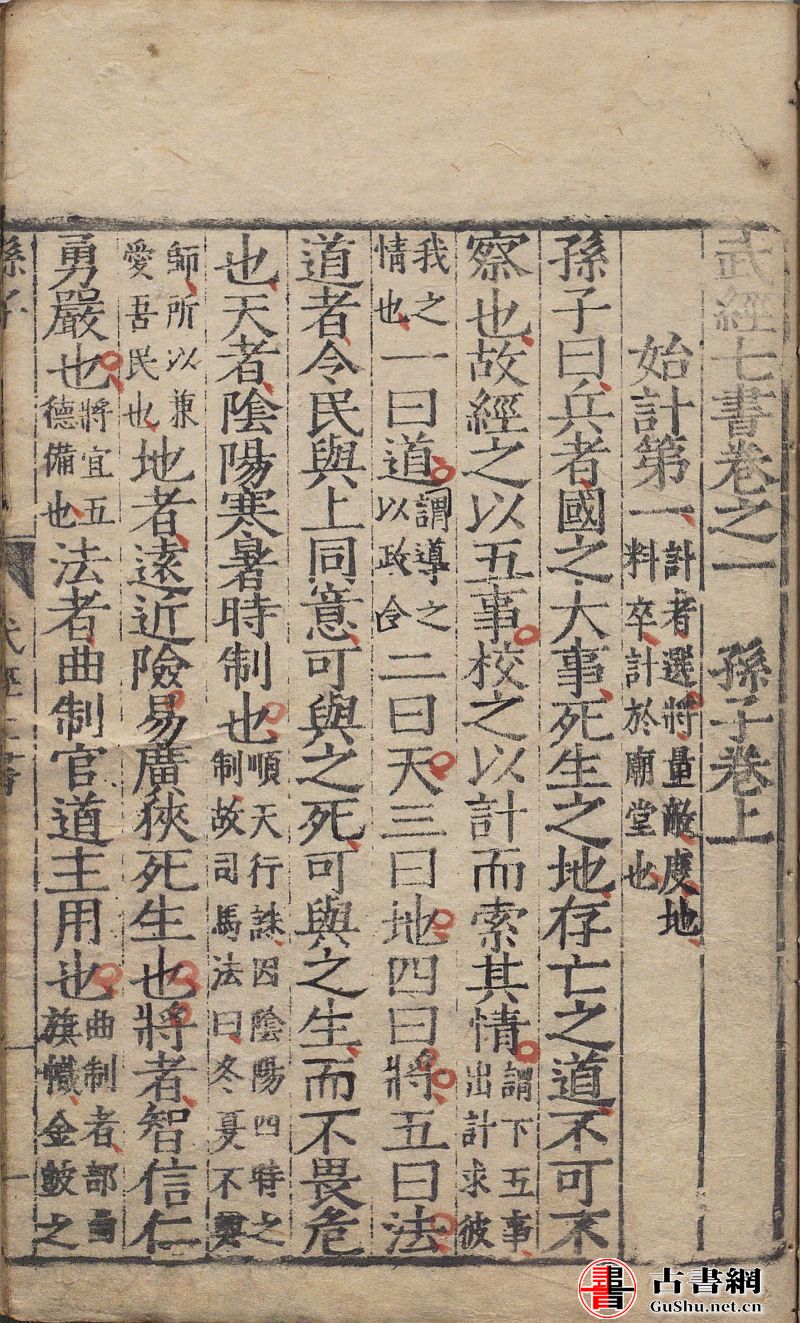 武經七書卷之一　孫子卷上
始計第一計者選將量敵度地料卒計於廟堂也
孫子曰兵者國之大事死生之地存亡之道不可不
察也故經之以五事校之以計而索其情謂下五事出計求彼
我之情也一曰道謂導之以政令二曰天三曰地四曰將五曰法
道者令民與上同意可與之死可與之生而不畏危
也天者陰陽寒暑時制也順天行誅因陰陽四時之制故司馬法曰冬夏不興
師所以兼愛吾民也地者遠近險易廣狹死生也將者智信仁
勇嚴也將宜五德備也法者曲制官道主用也曲制者部曲旗幟金鼓之
孫子
武經七書
古書網
GuShu.net.cn